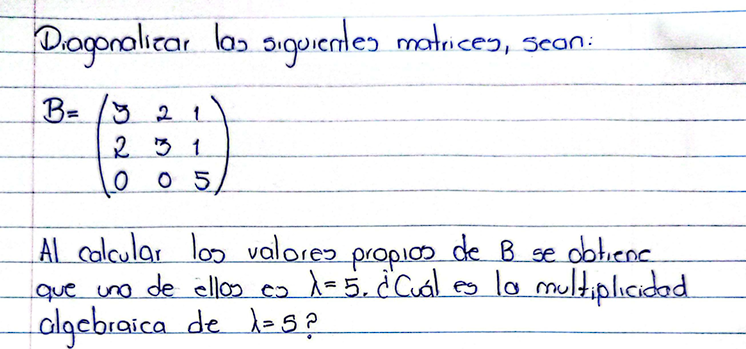 Diagonalizar las siguientes matrices, sean:
B= (3 2 1
2 3 1
0 0 5)
Al calcular los valores propios de B se obtiene
que uno de ellos es λ=5. ¿Cuál es la multiplicidad
algebraica de λ=5?